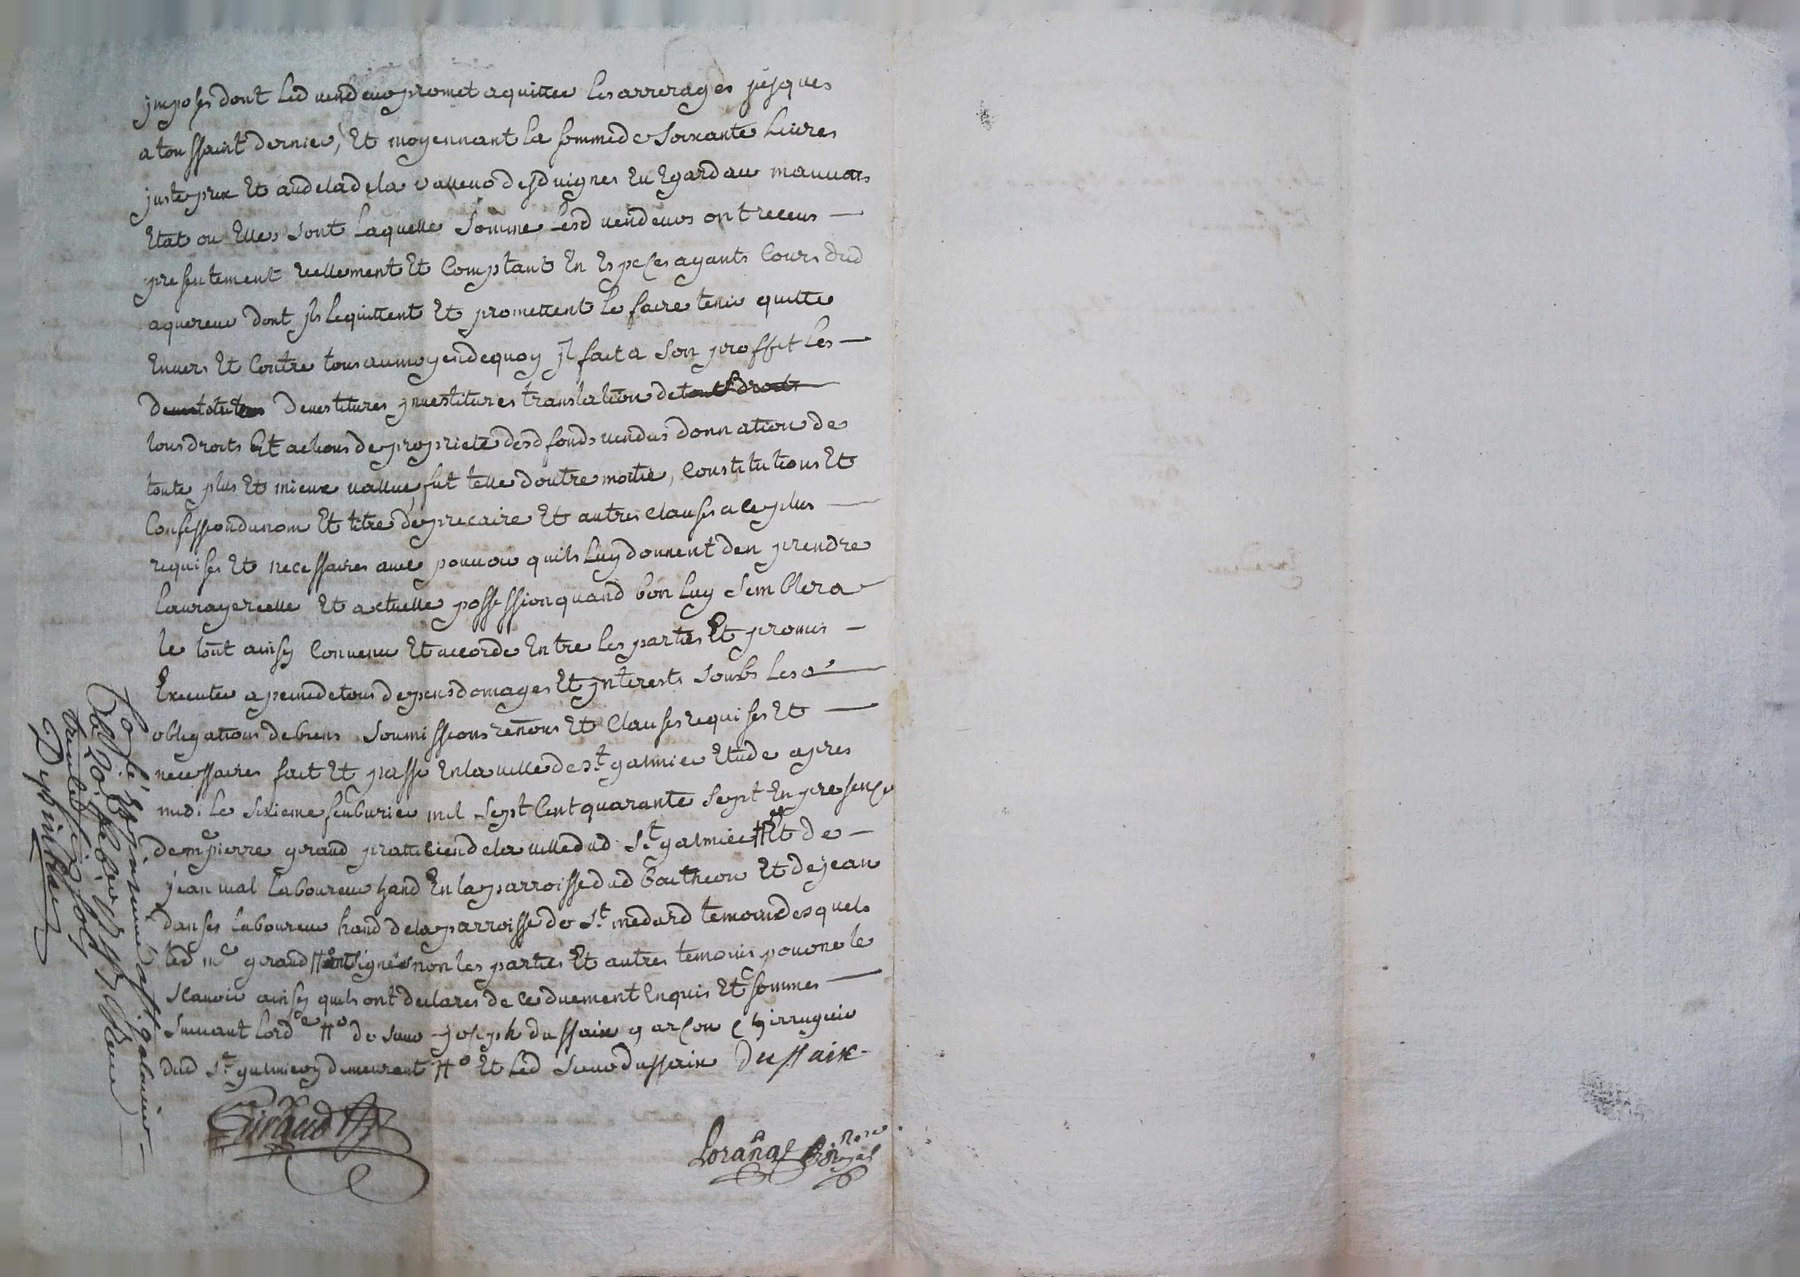 imposés dont led vendeur promet aquitter les arrerages jusques
a toussaint dernier, Et moyennant la somme de soixante livres
juste prix Et audela de la valleur desd vignes Eu Egard au mauvais
Etat ou Elles sont laquelle somme lesd vendeurs ont receus
presentement reellement Et Comptant En Especes ayants Cours dud
aquereur dont ils lequittent Et promettent le faire tenir quitte
Envers Et Contre tous au moyen dequoy il fait a son proffit les
devestitures investitures translation de
tous droits Et actions de propriete desd fonds vendus donnation de
toute plus Et mieux vallue fut telle doutre moitié, Constitutions Et
Confession du nom Et titre de precaire Et autres clauses a ce plus
requises Et necessaires avec pouvoir quils luy donnent den prendre
la vraye reelle Et actuelle possession quand bon luy semblera
le tout ainsy Convenu Et accordé Entre les parties Et promis
Executer a peine de tous depens domages Et interests soubs les
obligations de biens soumissions renons Et Clauses requises Et
necessaires fait Et passé En la ville de St galmier Etude apres
midi le sixieme feuburier mil sept Cent quarante sept En presence
de me pierre giraud praticien de la ville dud St galmier # Et de
jean mal laboureur hand En la parroisse dud Boutheon Et de jean
danses laboureur hand de la parroisse de St medard temoins desquels
led me giraud # ont signés non les parties Et autres temoins pour ne le
scavoir ainsy quils ont declarés de ce duement Enquis Et sommes
suivant lordce # de sieur joseph dussaix garçon chirrugien
dud St galmier y demeurant # Et led sieur dussaix Dussaix
Giraud
Lorange Nore Royal